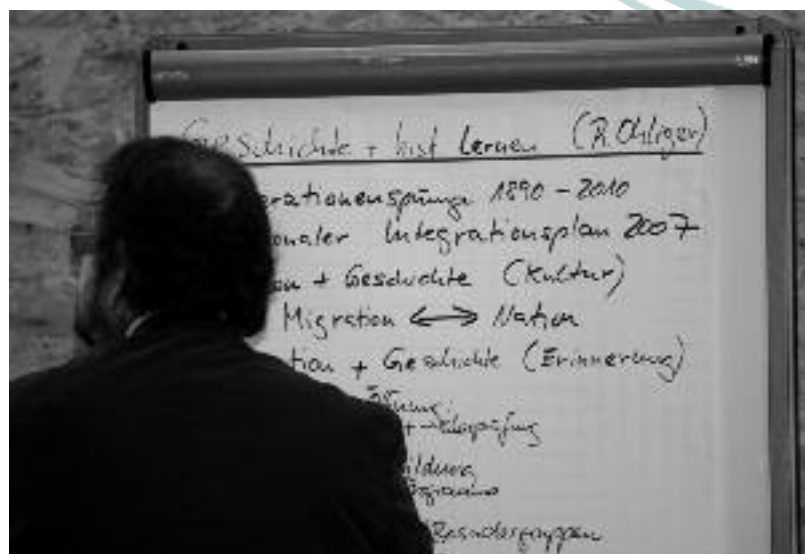 Geschichte + hist Lernen (R. Ohliger)
erationensprünge 1890 - 2010
onaler Integrationsplan 2007
on + Geschichte (Kultur)
Migration <-> Nation
tion + Geschichte (Erinnerung)
ildung
Besuchergruppen